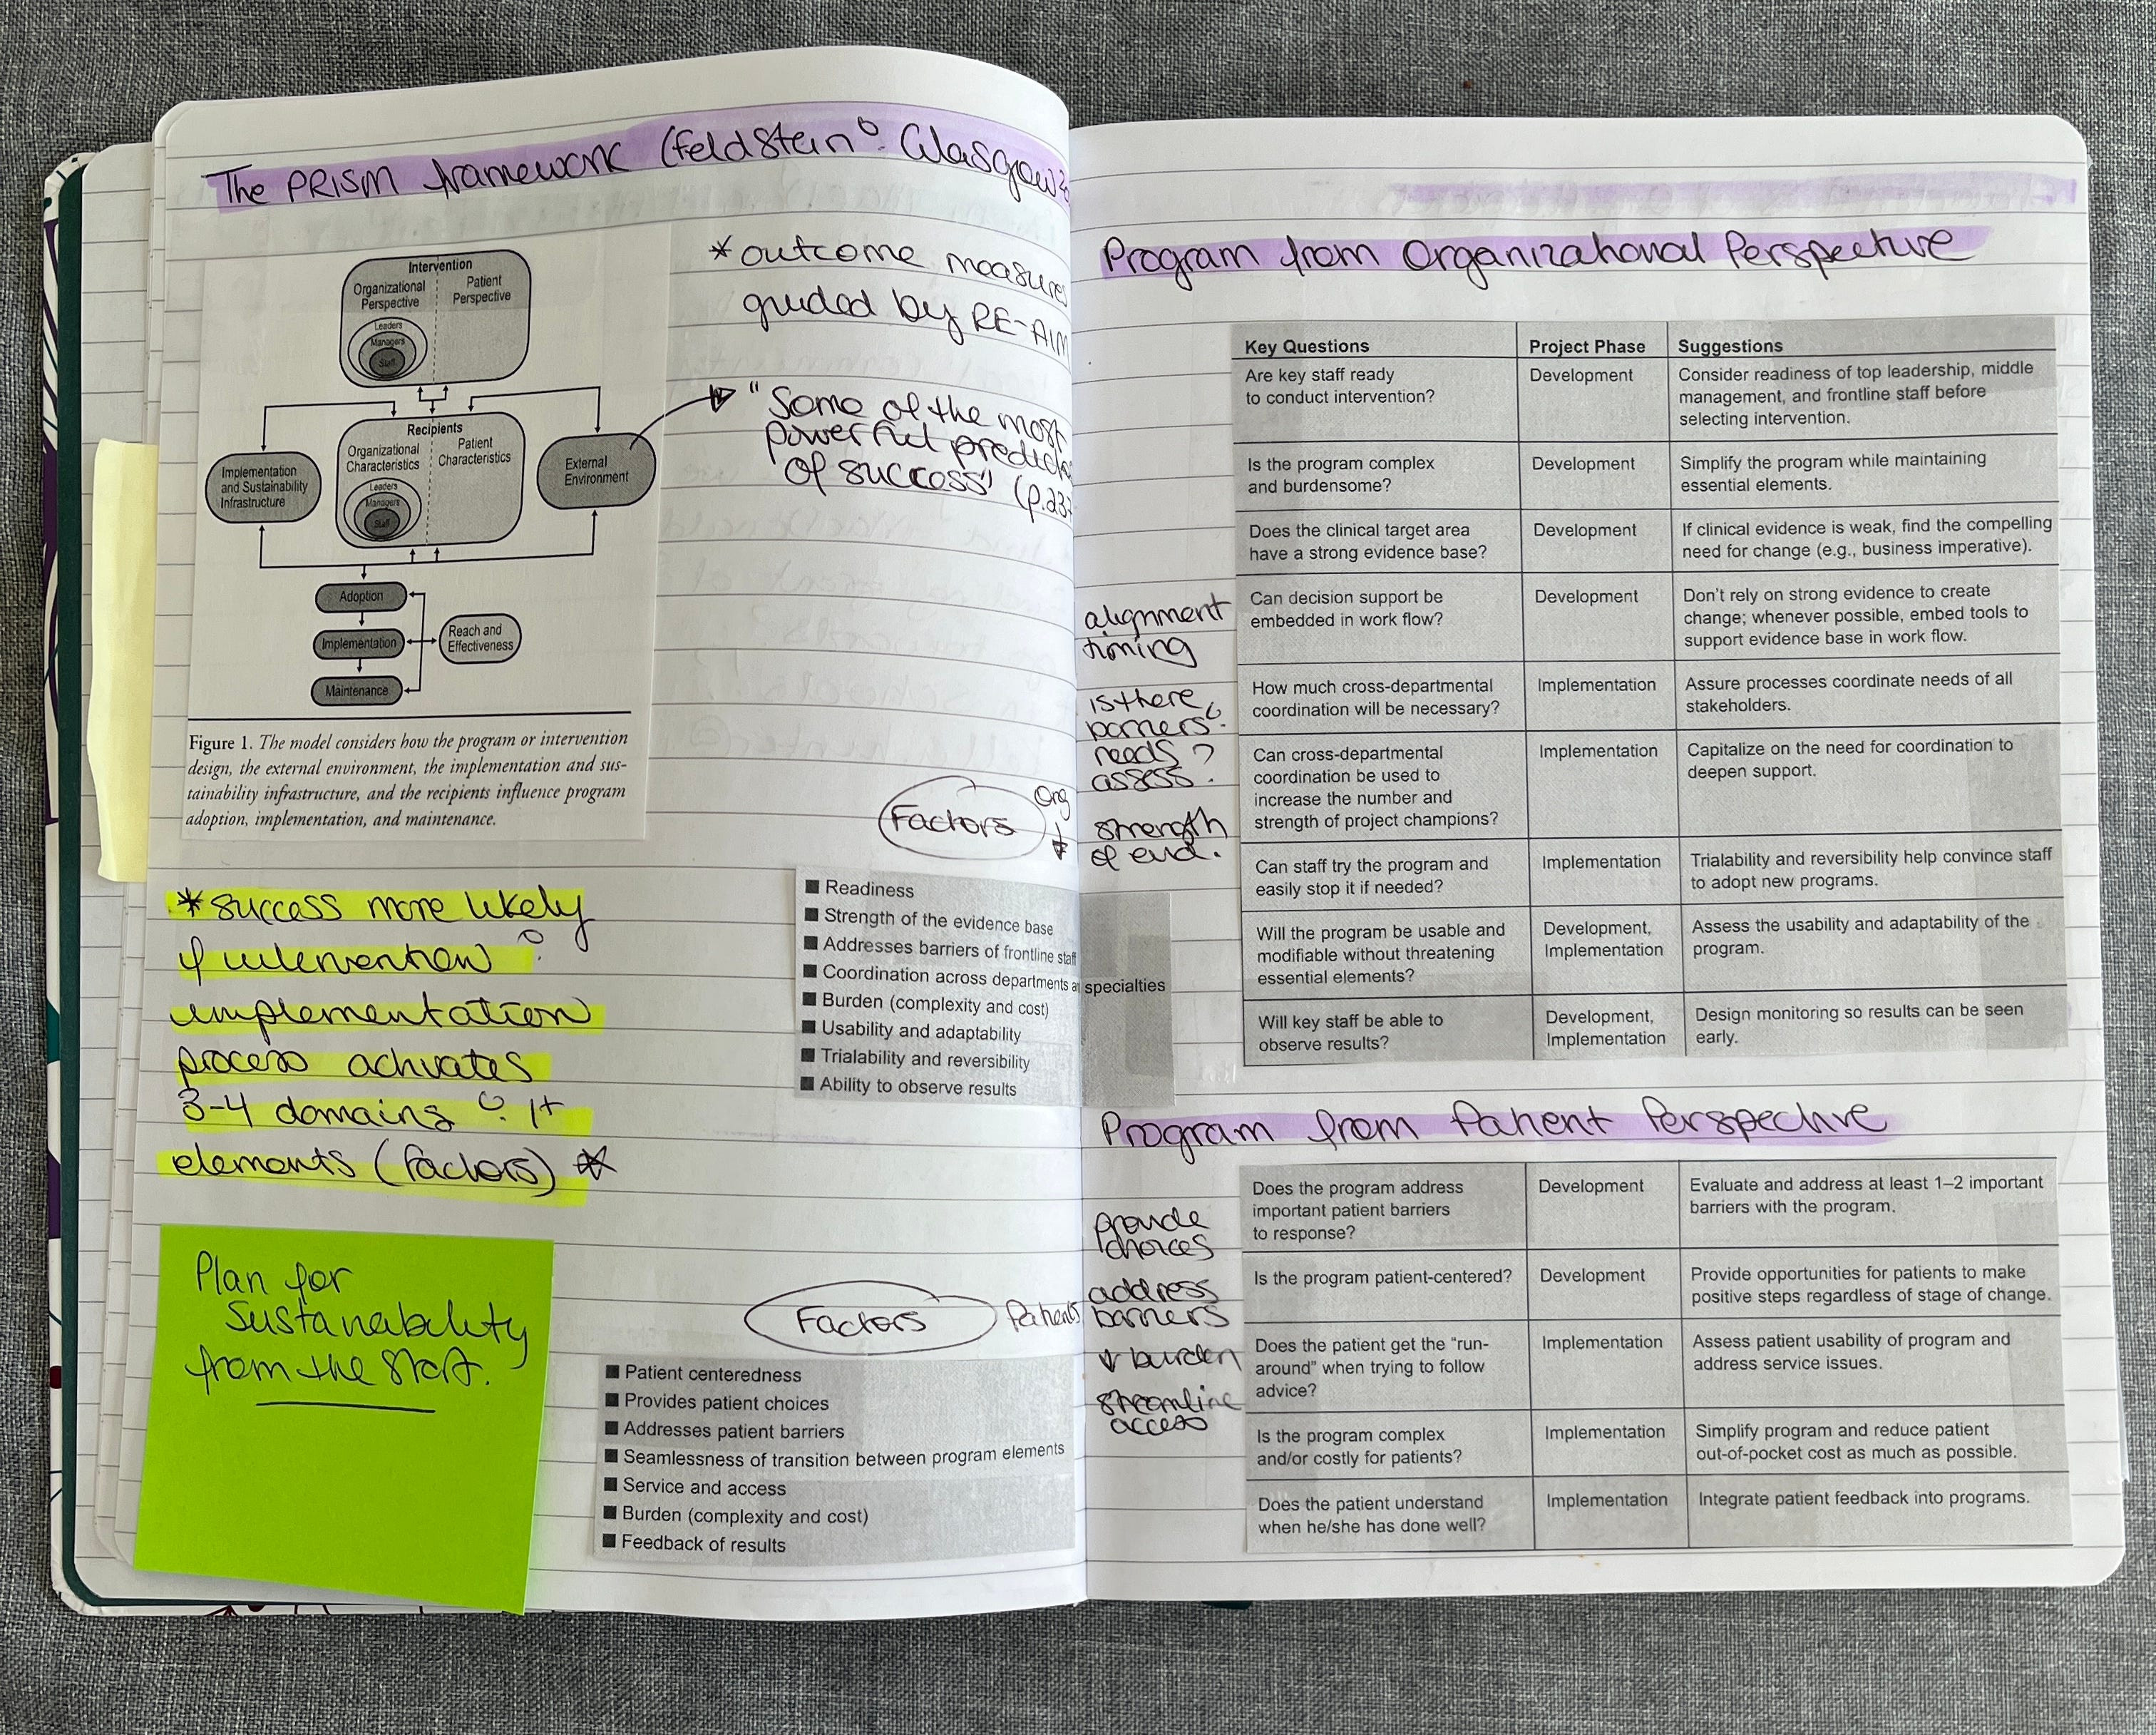 The PRISM framework (Feldstein & Glasgow
Intervention
Organizational
Perspective
Patient
Perspective
Leaders
Managers
Staff
Recipients
Organizational
Characteristics
Patient
Characteristics
Leaders
Managers
Staff
Implementation
and Sustainability
Infrastructure
External
Environment
Adoption
Implementation
Reach and
Effectiveness
Maintenance
Figure 1. The model considers how the program or intervention
design, the external environment, the implementation and sus-
tainability infrastructure, and the recipients influence program
adoption, implementation, and maintenance.
* outcome measures
guided by RE-AIM
"Some of the most
powerful predictors
of success" (p.23
Factors
Org
■ Readiness
■ Strength of the evidence base
■ Addresses barriers of frontline staff
■ Coordination across departments a specialties
■ Burden (complexity and cost)
■ Usability and adaptability
■ Trialability and reversibility
■ Ability to observe results
* success more likely
if intervention &
implementation
process activates
3-4 domains & 1+
elements (factors) *
Plan for
Sustainability
from the start.
Factors
Patients
■ Patient centeredness
■ Provides patient choices
■ Addresses patient barriers
■ Seamlessness of transition between program elements
■ Service and access
■ Burden (complexity and cost)
■ Feedback of results
Program from Organizational Perspective
Key Questions Project Phase Suggestions
Are key staff ready
to conduct intervention?
Development
Consider readiness of top leadership, middle
management, and frontline staff before
selecting intervention.
Is the program complex
and burdensome?
Development
Simplify the program while maintaining
essential elements.
Does the clinical target area
have a strong evidence base?
Development
If clinical evidence is weak, find the compelling
need for change (e.g., business imperative).
Can decision support be
embedded in work flow?
Development
Don't rely on strong evidence to create
change; whenever possible, embed tools to
support evidence base in work flow.
How much cross-departmental
coordination will be necessary?
Implementation
Assure processes coordinate needs of all
stakeholders.
Can cross-departmental
coordination be used to
increase the number and
strength of project champions?
Implementation
Capitalize on the need for coordination to
deepen support.
Can staff try the program and
easily stop it if needed?
Implementation
Trialability and reversibility help convince staff
to adopt new programs.
Will the program be usable and
modifiable without threatening
essential elements?
Development,
Implementation
Assess the usability and adaptability of the
program.
Will key staff be able to
observe results?
Development,
Implementation
Design monitoring so results can be seen
early.
alignment
timing
is there
barriers &
needs ?
assess.
strength
of evid.
Program from Patient Perspective
Does the program address
important patient barriers
to response?
Development
Evaluate and address at least 1–2 important
barriers with the program.
Is the program patient-centered?
Development
Provide opportunities for patients to make
positive steps regardless of stage of change.
Does the patient get the "run-
around" when trying to follow
advice?
Implementation
Assess patient usability of program and
address service issues.
Is the program complex
and/or costly for patients?
Implementation
Simplify program and reduce patient
out-of-pocket cost as much as possible.
Does the patient understand
when he/she has done well?
Implementation
Integrate patient feedback into programs.
provide
choices
address
barriers
↓ burden
streamline
access